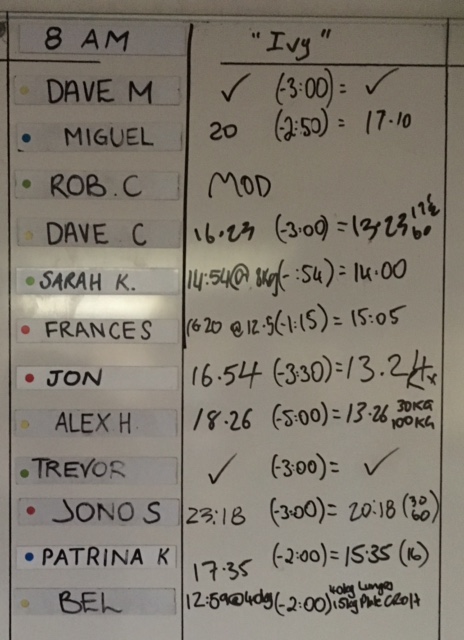 8 AM "Ivy"
DAVE M ✓ (-3:00) = ✓
MIGUEL 20 (-2:50) = 17.10
ROB. C MOD
DAVE C 16.23 (-3:00) = 13.23
SARAH K. 14:54@ 8kg (-:54) = 14.00
FRANCES 16 20 @ 12.5 (-1:15) = 15:05
JON 16.54 (-3:30) = 13.24
ALEX H 18.26 (-5:00) = 13.26 30KG 100KG
TREVOR ✓ (-3:00) = ✓
JONO S 23:18 (-3:00) = 20:18 (30 60)
PATRINA K 17.35 (-2:00) = 15.35 (16)
BEL 12:59@40kg (-2:00) 40kg Lunges 15kg Plate